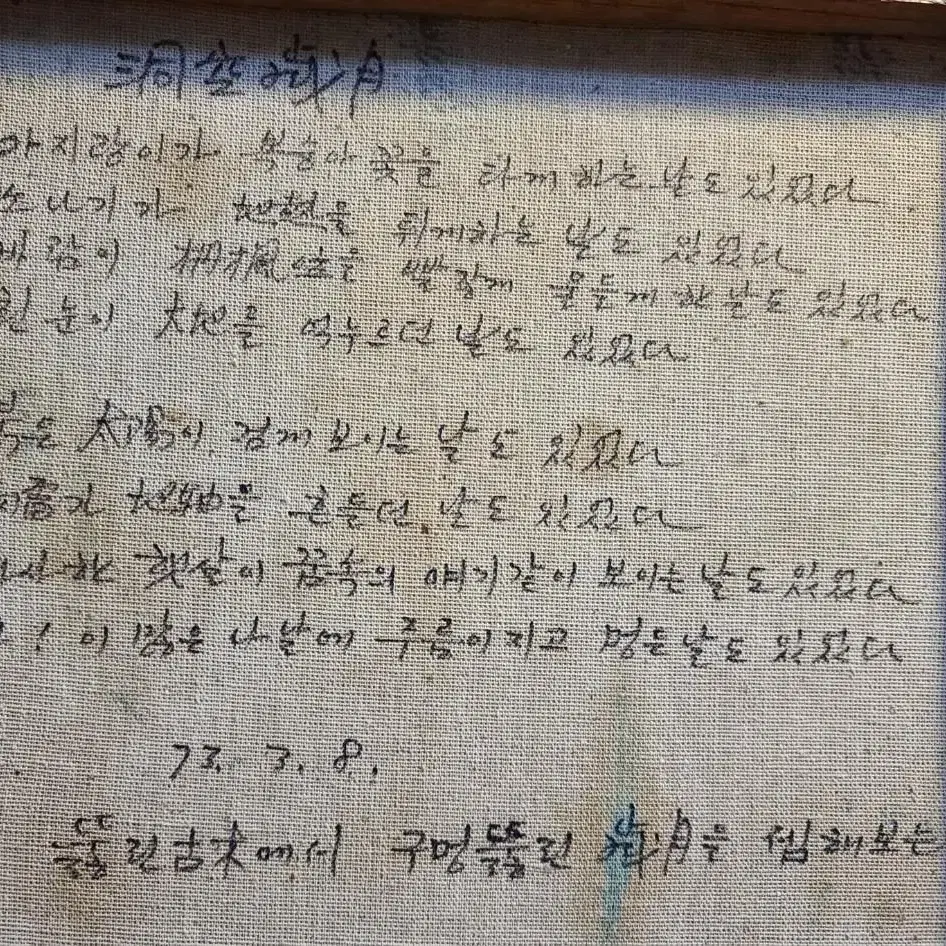 洞空歲月
아지랑이가 복숭아 꽃을 타게 하는 날도 있었다
소나기가 를 뛰게하는 날도 있었다
바람이 을 빨갛게 물들게 한 날도 있었다
흰 눈이 大地를 억누르던 날도 있었다
붉은 太陽이 검게 보이는 날도 있었다
가 地軸을 흔들던 날도 있었다
한 햇살이 꿈속의 얘기같이 보이는 날도 있었다
! 이 많은 나날에 주름이 지고 멍든 날도 있었다
73. 3. 8.
뚫린 古木에서 구멍뚫린 歲月을 해보는